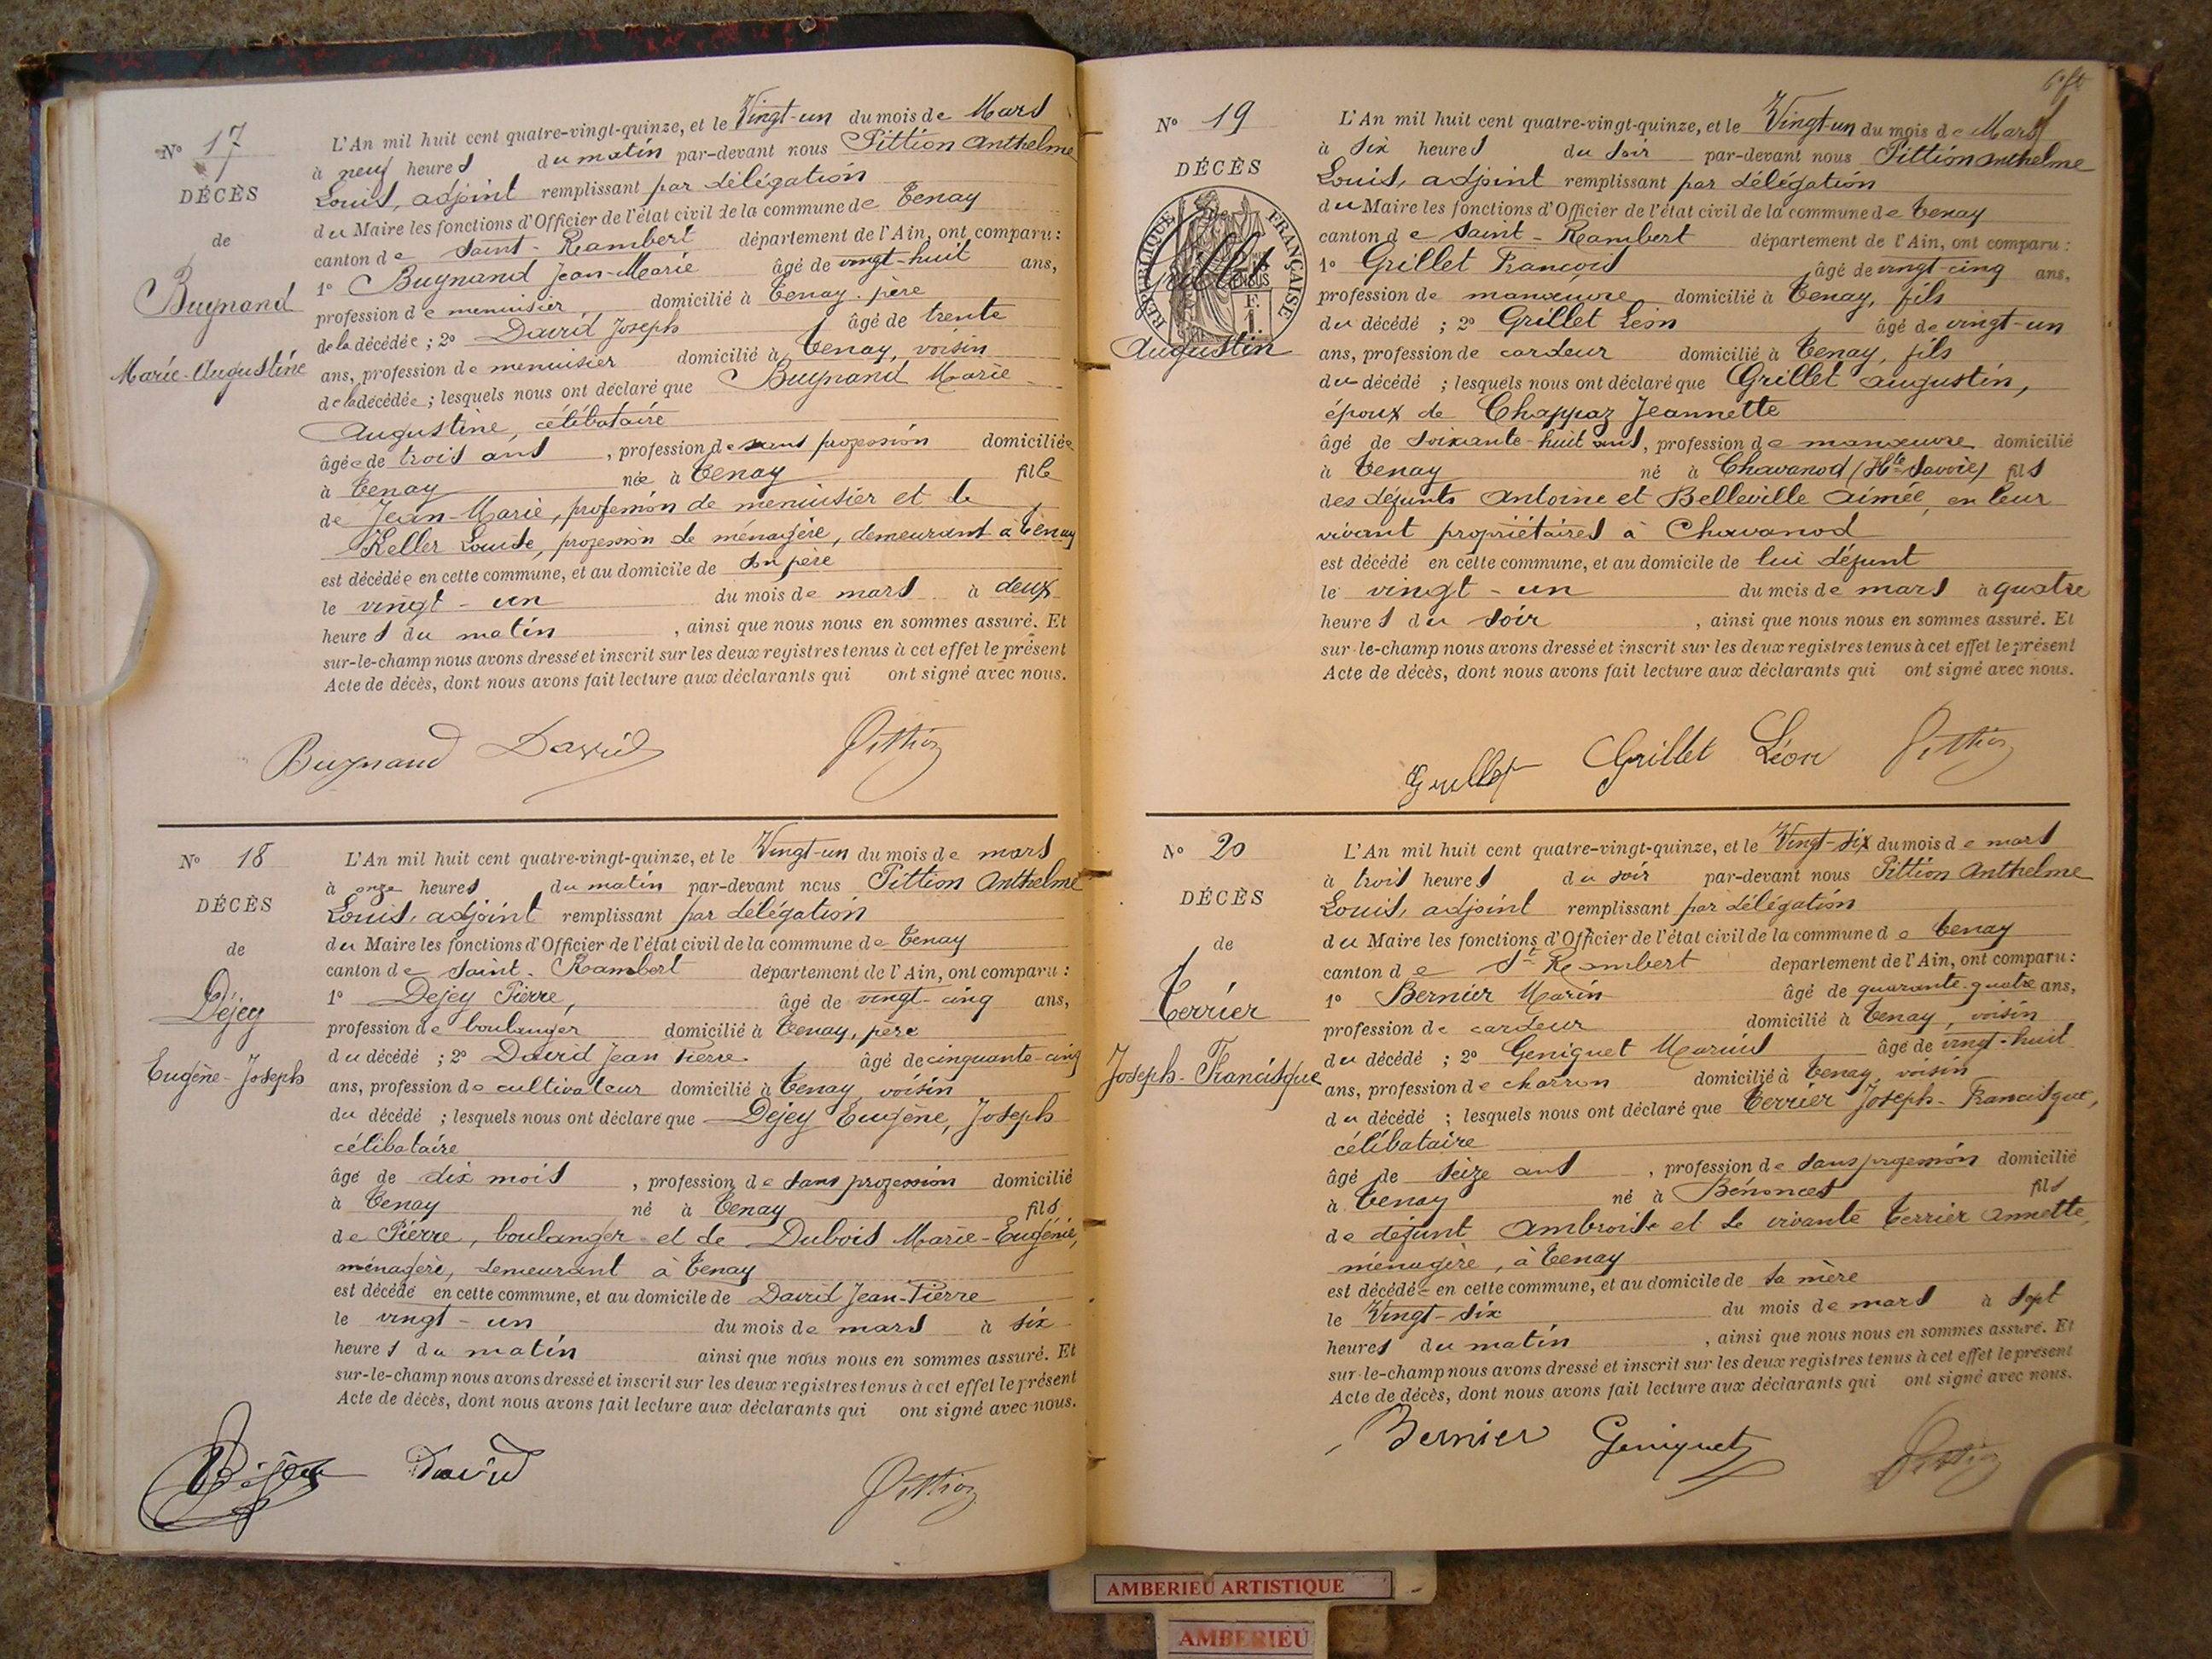 N° 17
DÉCÈS
de
Bugnand
Marie-Augustine
L'An mil huit cent quatre-vingt-quinze, et le Vingt-un du mois de Mars
à neuf heures du matin par-devant nous Pittion Anthelme
Louis, adjoint remplissant par délégation
du Maire les fonctions d'Officier de l'état civil de la commune de Tenay
canton de Saint-Rambert département de l'Ain, ont comparu :
1° Bugnand Jean-Marie âgé de vingt-huit ans,
profession de menuisier domicilié à Tenay. père
de la décédée ; 2° David Joseph âgé de trente
ans, profession de menuisier domicilié à Tenay, voisin
de la décédée ; lesquels nous ont déclaré que Bugnand Marie
Augustine, célibataire
âgée de trois ans , profession de sans profession domiciliée
à Tenay née à Tenay fille
de Jean-Marie, profession de menuisier et de
Keller Louise, profession de ménagère, demeurant à Tenay
est décédée en cette commune, et au domicile de son père
le vingt-un du mois de mars à deux
heures du matin , ainsi que nous nous en sommes assuré. Et
sur-le-champ nous avons dressé et inscrit sur les deux registres tenus à cet effet le présent
Acte de décès, dont nous avons fait lecture aux déclarants qui ont signé avec nous.
Bugnand David Pittion
N° 18
DÉCÈS
de
Déjey
Eugène-Joseph
L'An mil huit cent quatre-vingt-quinze, et le Vingt-un du mois de mars
à onze heures du matin par-devant nous Pittion Anthelme
Louis, adjoint remplissant par délégation
du Maire les fonctions d'Officier de l'état civil de la commune de Tenay
canton de Saint-Rambert département de l'Ain, ont comparu :
1° Dejey Pierre, âgé de vingt-cinq ans,
profession de boulanger domicilié à Tenay, père
du décédé ; 2° David Jean Pierre âgé de cinquante-cinq
ans, profession de cultivateur domicilié à Tenay voisin
du décédé ; lesquels nous ont déclaré que Dejey Eugène, Joseph
célibataire
âgé de dix mois , profession de sans profession domicilié
à Tenay né à Tenay fils
de Pierre, boulanger et de Dubois Marie-Eugénie,
ménagère, demeurant à Tenay
est décédé en cette commune, et au domicile de David Jean-Pierre
le vingt-un du mois de mars à six
heures du matin ainsi que nous nous en sommes assuré. Et
sur-le-champ nous avons dressé et inscrit sur les deux registres tenus à cet effet le présent
Acte de décès, dont nous avons fait lecture aux déclarants qui ont signé avec nous.
Déjey David Pittion
N° 19
DÉCÈS
RÉPUBLIQUE FRANÇAISE
Grillet
Augustin
L'An mil huit cent quatre-vingt-quinze, et le Vingt-un du mois de Mars
à six heures du soir par-devant nous Pittion Anthelme
Louis, adjoint remplissant par délégation
du Maire les fonctions d'Officier de l'état civil de la commune de Tenay
canton de Saint-Rambert département de l'Ain, ont comparu :
1° Grillet François âgé de vingt-cinq ans,
profession de manœuvre domicilié à Tenay, fils
du décédé ; 2° Grillet Léon âgé de vingt-un
ans, profession de cardeur domicilié à Tenay, fils
du décédé ; lesquels nous ont déclaré que Grillet Augustin,
époux de Chappaz Jeannette
âgé de soixante-huit ans, profession de manœuvre domicilié
à Tenay né à Chavanod (Hte Savoie) fils
des défunts Antoine et Belleville Aimée, en leur
vivant propriétaires à Chavanod
est décédé en cette commune, et au domicile de lui défunt
le vingt-un du mois de mars à quatre
heures du soir , ainsi que nous nous en sommes assuré. Et
sur-le-champ nous avons dressé et inscrit sur les deux registres tenus à cet effet le présent
Acte de décès, dont nous avons fait lecture aux déclarants qui ont signé avec nous.
Grillet Grillet Léon Pittion
N° 20
DÉCÈS
de
Terrier
Joseph-Francisque
L'An mil huit cent quatre-vingt-quinze, et le Vingt-six du mois de mars
à trois heures du soir par-devant nous Pittion Anthelme
Louis, adjoint remplissant par délégation
du Maire les fonctions d'Officier de l'état civil de la commune de Tenay
canton de St Rambert département de l'Ain, ont comparu :
1° Bernier Marin âgé de quarante-quatre ans,
profession de cardeur domicilié à Tenay, voisin
du décédé ; 2° Geniquet Marius âgé de vingt-huit
ans, profession de charron domicilié à Tenay, voisin
du décédé ; lesquels nous ont déclaré que Terrier Joseph-Francisque,
célibataire
âgé de seize ans , profession de sans profession domicilié
à Tenay né à Bénonces fils
de défunt Ambroise et de vivante Terrier Annette,
ménagère, à Tenay
est décédé en cette commune, et au domicile de sa mère
le Vingt-six du mois de mars à sept
heures du matin , ainsi que nous nous en sommes assuré. Et
sur-le-champ nous avons dressé et inscrit sur les deux registres tenus à cet effet le présent
Acte de décès, dont nous avons fait lecture aux déclarants qui ont signé avec nous.
Bernier Geniquet Pittion
AMBERIEU ARTISTIQUE
AMBERIEU